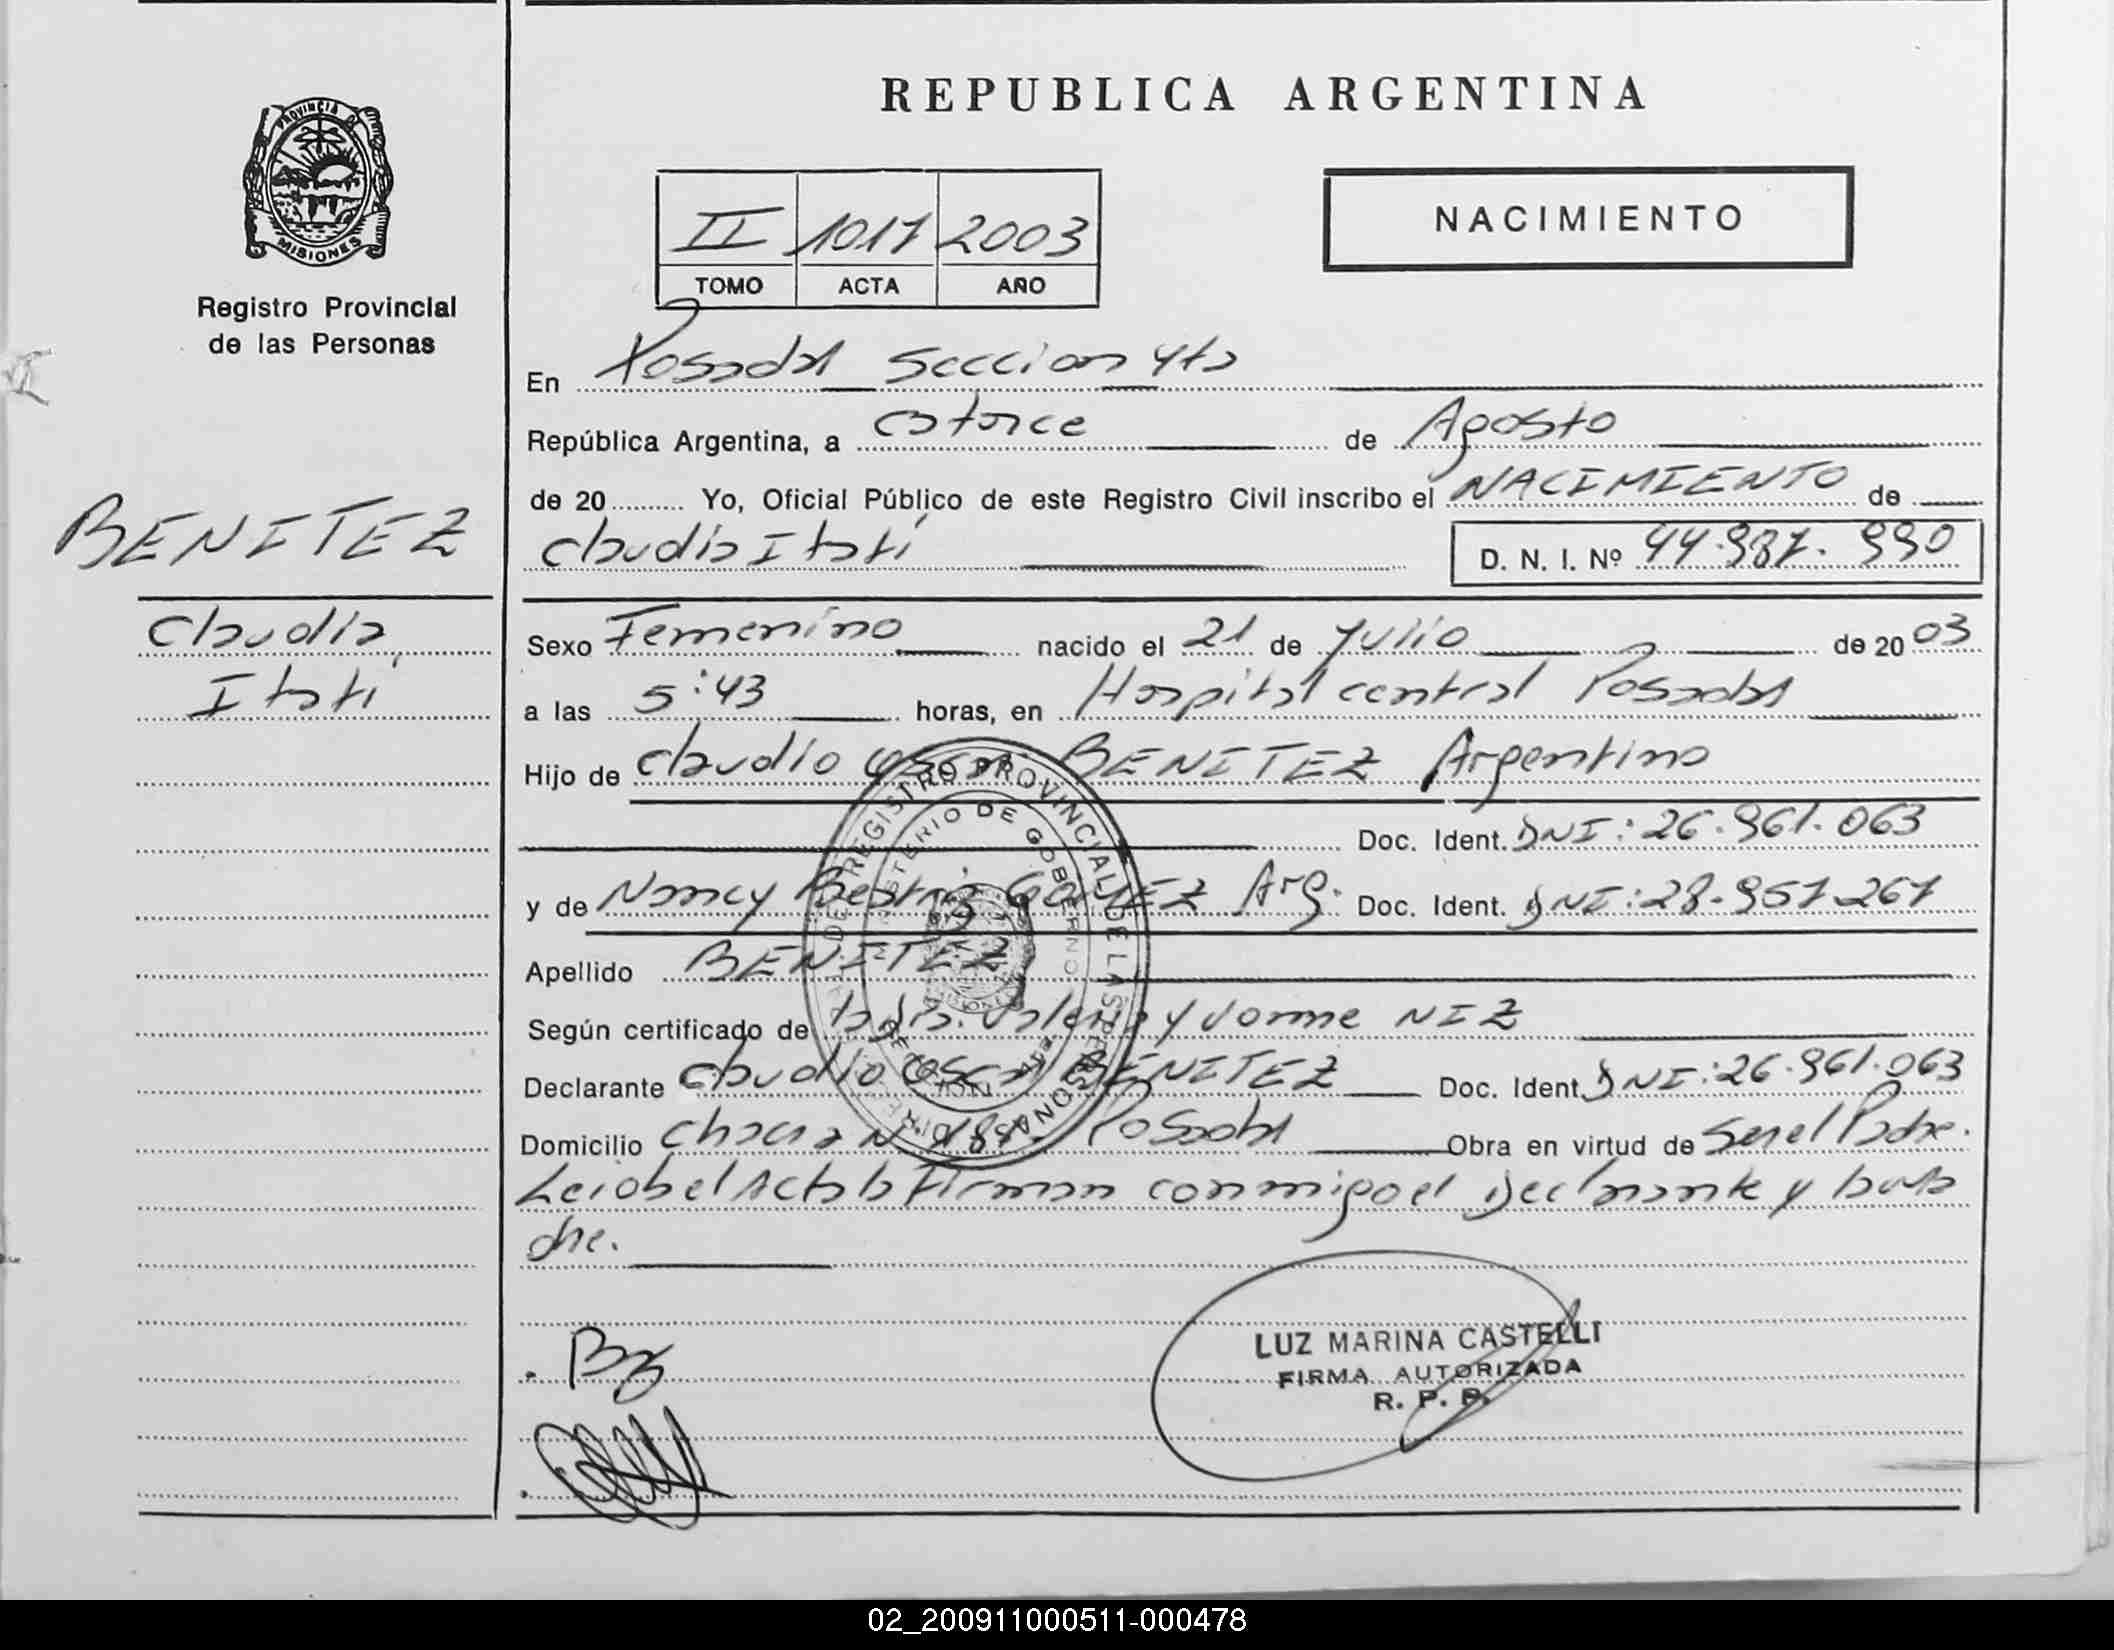 PROVINCIA DE
MISIONES
Registro Provincial
de las Personas
BENITEZ
Claudia
Itatí
REPUBLICA ARGENTINA
II 1017 2003
TOMO ACTA AÑO
NACIMIENTO
En Posadas Seccion 4ta
República Argentina, a catorce de Agosto
de 20 Yo, Oficial Público de este Registro Civil inscribo el NACIMIENTO de
Claudia Itatí D. N. I. Nº 44.987.990
Sexo Femenino nacido el 21 de Julio de 2003
a las 5:43 horas, en Hospital central Posadas
Hijo de Claudio Oscar BENITEZ Argentino
Doc. Ident. DNI: 26.961.063
y de Nancy Beatriz Arg. Doc. Ident. DNI: 28.957.267
Apellido BENITEZ
Según certificado de Valeria Yvonne NIZ
Declarante Claudio Oscar BENITEZ Doc. Ident. DNI: 26.961.063
Domicilio Posadas Obra en virtud de Ser el Padre.
Leida el Acta la Firman conmigo el Declarante y la Ma
dre.
LUZ MARINA CASTELLI
FIRMA AUTORIZADA
R. P. P.
02_200911000511-000478